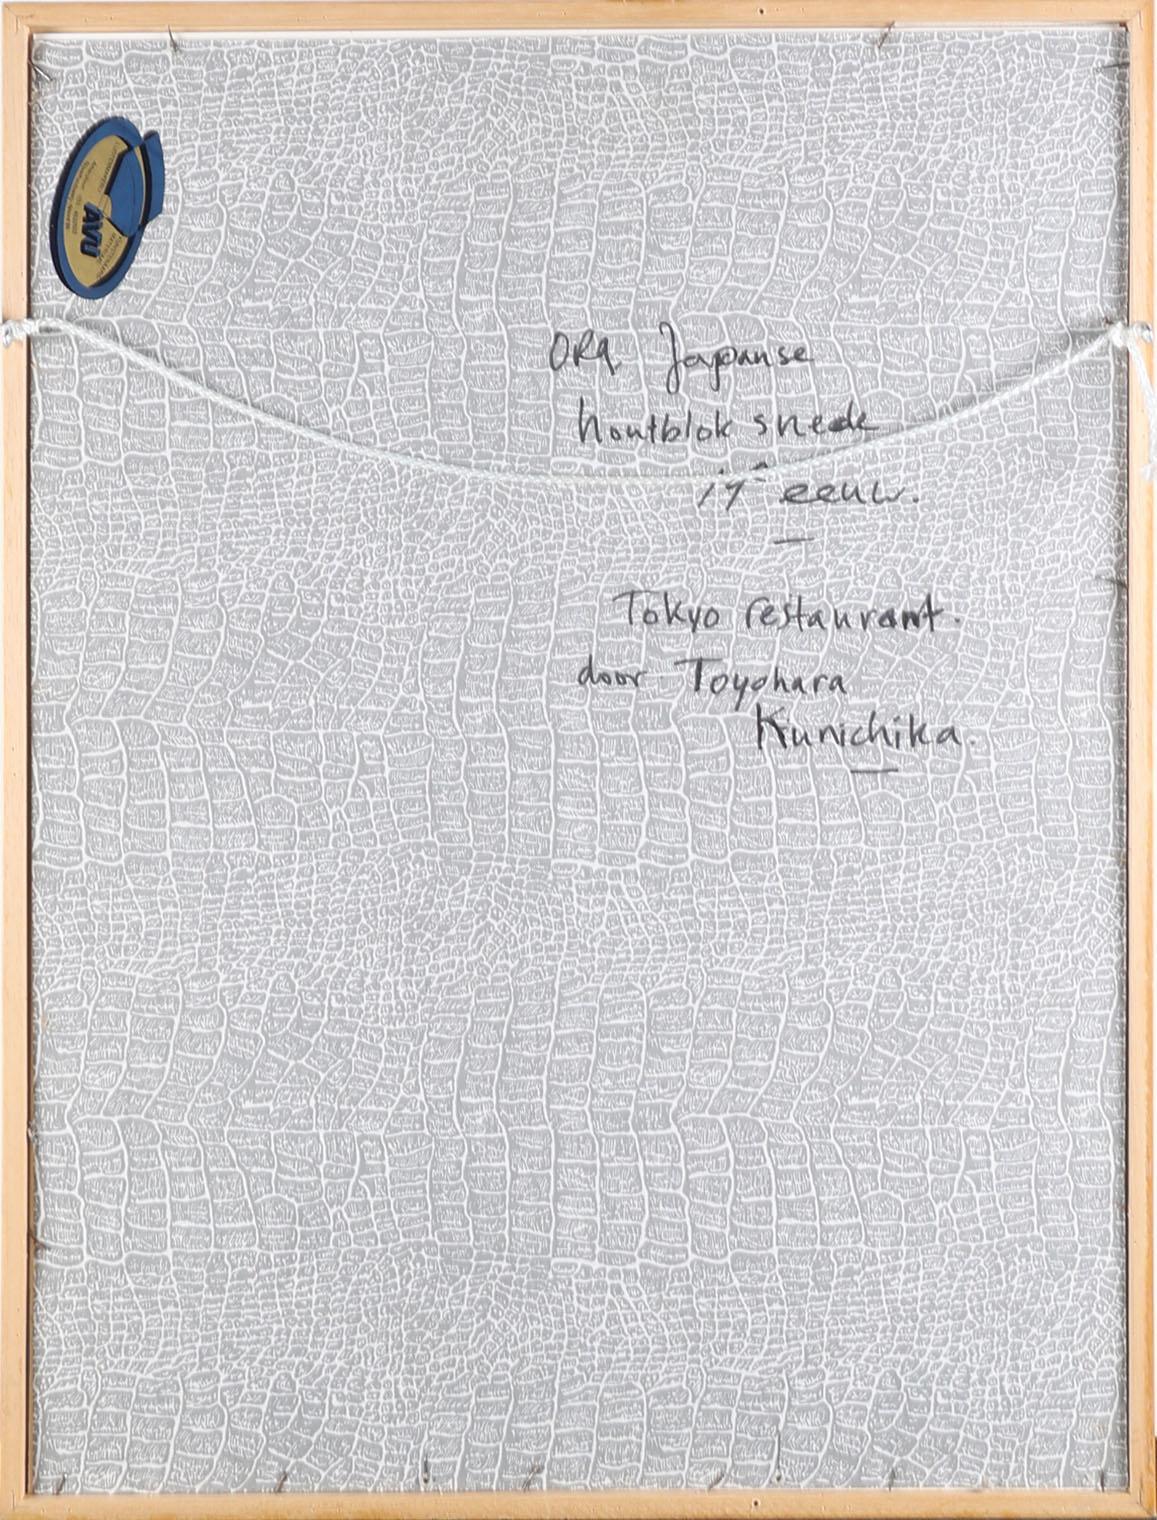 ORG. Japanse
houtblok snede
19e eeuw.
Tokyo restaurant.
door Toyohara
Kunichika.
AVU